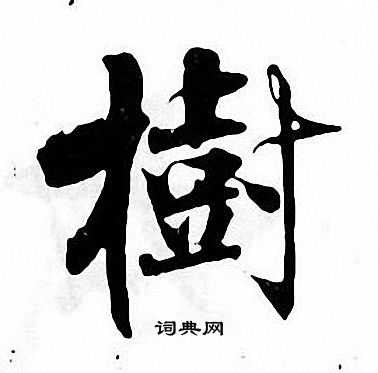 樹
词典网